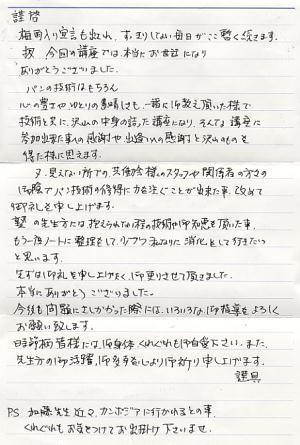 謹啓
梅雨入り宣言も出され、すっきりしない毎日がここ暫く続きます。
扨 今回の講座では、本当にお世話になり
ありがとうございました。
パンの技術はもちろん
心の豊かさ、ゆとりの素晴しさも一緒に御教え頂いた様で
技術と共に、沢山の中身の詰った講座になり、そんな講座に
参加出来た事への感謝や、出逢いへの感謝と沢山のものを
得た様に思えます。
又、見えない所での、スタッフや関係者の方々の
御陰でパン技術の修得に力を注ぐことが出来た事、改めて
御礼を申し上げます。
塾の先生方には、抱えられない程の技術や御知恵を頂いた事、
もう一度ノートに整理をして、私なりに消化をして行きたい
と思います。
先ずは御礼を申し上げたく、御便りさせて頂きました。
本当にありがとうございました。
今後も問題にさしかかった際には、いろいろな御指導をよろしく
お願い致します。
時節柄皆様には、御身体くれぐれも御自愛下さい。また、
先生方の御活躍、御多幸を心より御祈り申し上げます。
謹具
PS 加藤先生 近々、カンボジアに行かれるとの事、
くれぐれもお気をつけてお出掛け下さいませ。